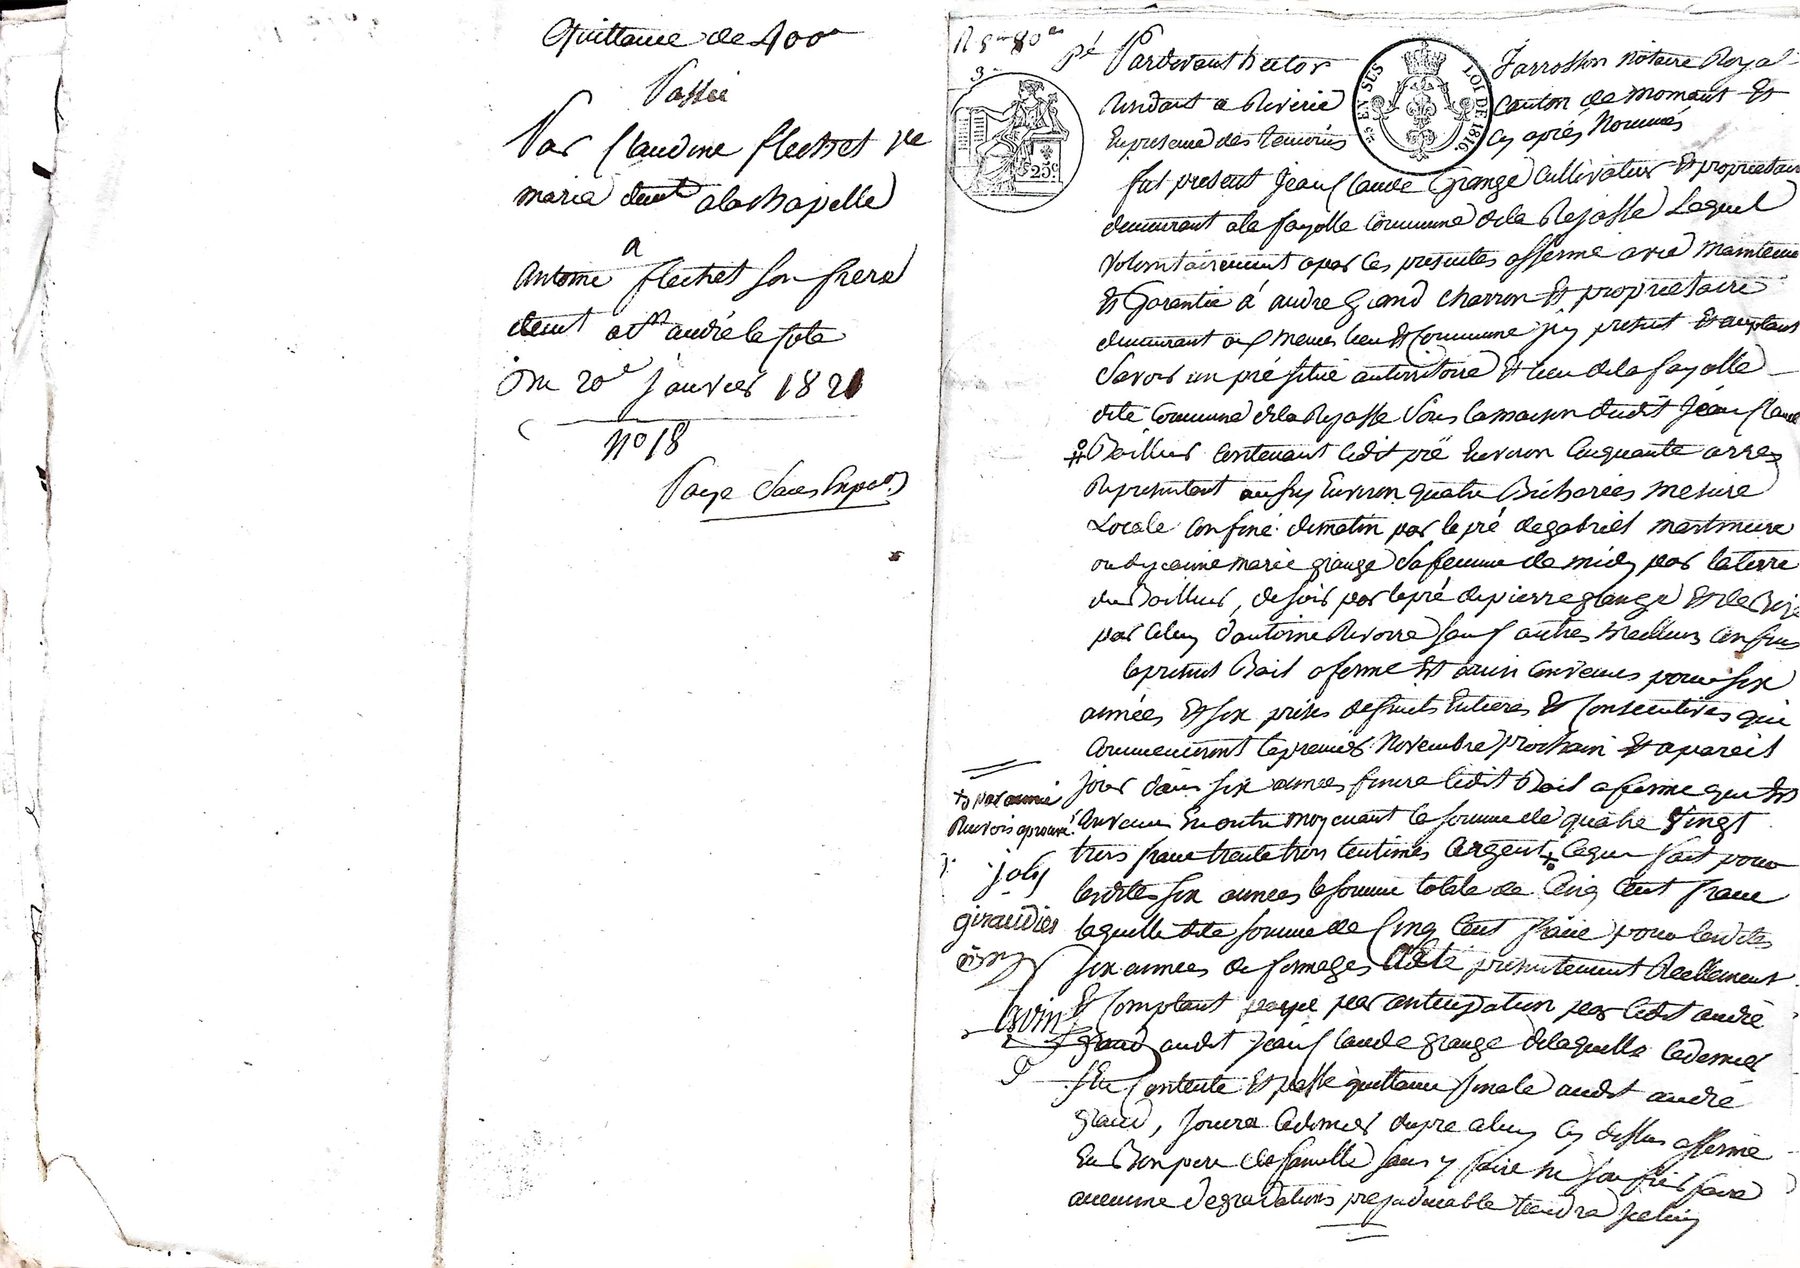 Quittance de 400 fr
Passée
Par Claudine flechet ve
marie demt a la chapelle
a
Antoine flechet Son frere
demt a St andré la Cote
Du 20e janvier 1821
No 18
Paye Sans
R 5 80
3
25c
25 EN SUS
LOI DE 1816
Pardevant hector Jarrosson Notaire Royal
Residant a Riverie Canton de Mornant Et
En presence des temoins Cy après Nommés
fut present Jean Claude Grange Cultivateur Et proprietaire
demeurant a la fayolle Commune de la Rajasse Lequel
Volontairement a par Ces presentes afferme avec Maintenue
Et Garentie à andre Grand Charron Et proprietaire
demeurant au meme lieu Et Commune jcy present Et acceptant
Savoir un pré Situé au territoire Et lieu de la fayolle
dite Commune de la Rajasse Sous la maison dudit Jean Claude
Bailleur Contenant ledit pré Environ Cinquante arres
Representant aussy Environ quatre Bicherées mesure
Locale Confiné de matin par le pré de gabriel
ou de jeanne marie grange Sa femme de midy par la terre
du Bailleur, de soir par le pré de pierre grange Et de Bize
par Celuy d'antoine Rivoire Sauf autres meilleurs Confins
le present Bail a ferme Est ainsi Convenus pour six
années Et six prises de fruits Entieres Et Consecutives qui
Commenceront le premier Novembre prochain Et a pareil
jour dans six années finira ledit Bail a ferme qui Est
Convenu En outre moyenant la somme de quatre Vingt
trois franc trente trois Centimes Largent Ce qui fait pour
lesdites six années la somme totale de Cinq Cent franc
laquelle dite somme de Cinq Cent franc pour lesdites
six années de fermages a Eté presentement Reellement
Et Comptant payé par anticipation par ledit andré
grand audit Jean Claude grange de laquelle Ce dernier
s'En Contente Et passe quittance finale audit andré
grand, Jouira Ce dernier du pre a luy Cy dessus affermé
En Bon pere de famille Sans y faire Ni Souffrir faire
aucunne degradations prejudiciable tiendra jceluy
par année
Renvois aprouvé
joly
giraudier